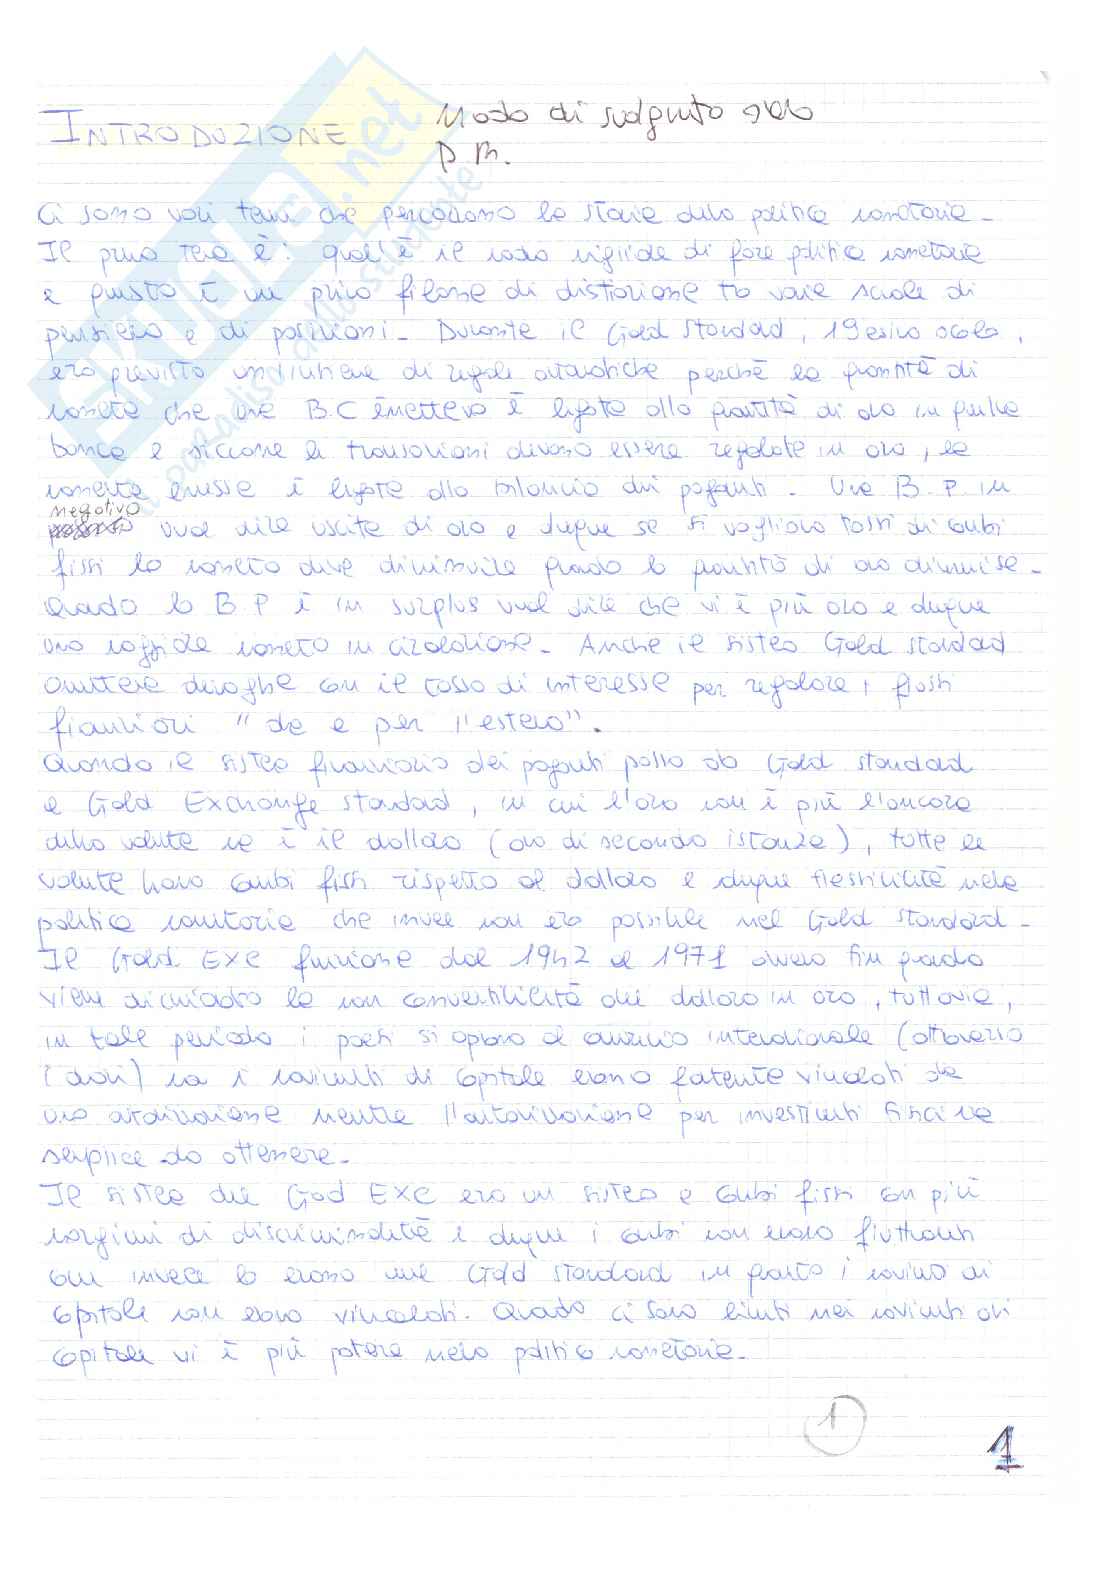 INTRODUZIONE
Modo di svolgimento della
P.M.
Ci sono vari temi che percorrono la storia della politica monetaria.
Il primo tema è: qual'è il modo migliore di fare politica monetaria
e questo è un primo filone di distinzione tra varie scuole di
pensiero e di posizioni. Durante il Gold Standard, 19esimo secolo,
era previsto un insieme di regole automatiche perchè la quantità di
moneta che una B.C emetteva è legata alla quantità di oro in quella
banca e siccome le transazioni devono essere regolate in oro, la
moneta emessa è legata alla bilancia dei pagamenti. Una B.P in
negativo vuol dire uscita di oro e dunque se si vogliono tassi di cambi
fissi la moneta deve diminuire quando la quantità di oro diminuisce.
Quando la B P è in surplus vuol dire che vi è più oro e dunque
una maggiore moneta in circolazione. Anche il sistema Gold standard
ammetteva deroghe con il tasso di interesse per regolare i flussi
finanziari "da e per l'estero".
Quando il sistema finanziario dei pagamenti passa da Gold standard
a Gold Exchange standard, in cui l'oro non è più l'ancora
della valuta ma è il dollaro (oro di seconda istanza), tutte le
valute hanno cambi fissi rispetto al dollaro e dunque flessibilità nella
politica monetaria che invece non era possibile nel Gold standard.
Il Gold EXC funziona dal 1942 al 1971 ovvero fin quando
viene dichiarata la non convertibilità del dollaro in oro, tuttavia,
in tale periodo i paesi si aprono al commercio internazionale (attraverso
i dazi) ma i movimenti di capitale erano fortemente vincolati da
una autorizzazione mentre l'autorizzazione per investimenti fisici era
semplice da ottenere.
Il sistema del Gold EXC era un sistema a cambi fissi con più
margini di discrezionalità e dunque i cambi non erano fluttuanti
com invece lo erano nel Gold standard in quanto i movimenti di
capitale non erano vincolati. Quando ci sono limiti nei movimenti di
capitale vi è più potere nella politica monetaria.
1
1
SKUOLA.net
il paradiso dello studente